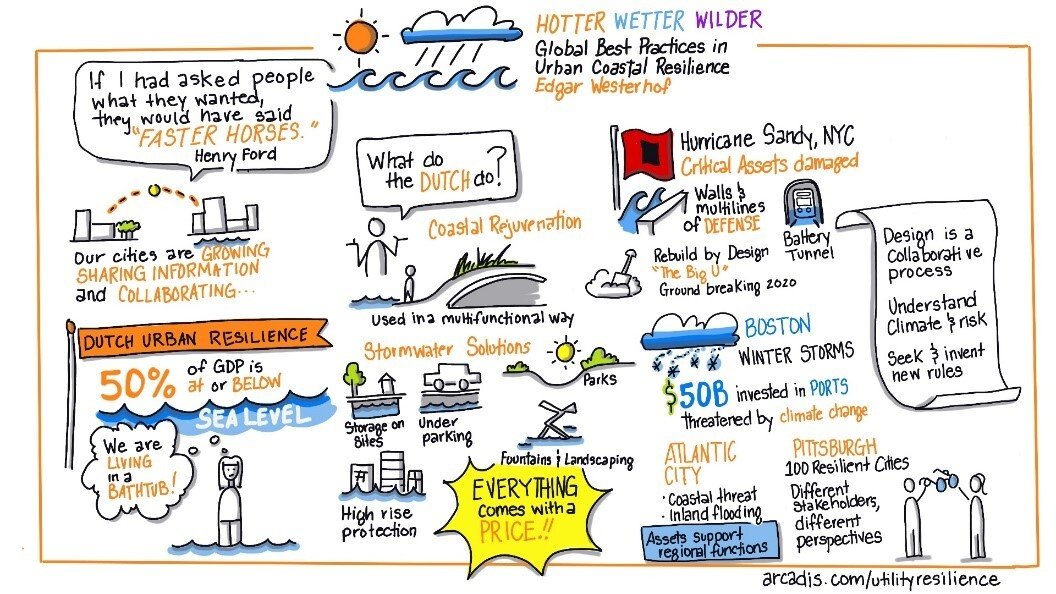 HOTTER WETTER WILDER
Global Best Practices in
Urban Coastal Resilience
Edgar Westerhof
If I had asked people
what they wanted,
they would have said
"FASTER HORSES."
Henry Ford
Our cities are GROWING
SHARING INFORMATION
and COLLABORATING...
DUTCH URBAN RESILIENCE
50% of GDP is
at or BELOW
SEA LEVEL
We are
LIVING
in a
BATHTUB!
What do
the DUTCH do?
Coastal Rejuvenation
Used in a multifunctional way
Stormwater Solutions
Storage on
Sites
Under
parking
Parks
Fountains & Landscaping
High rise
protection
EVERYTHING
comes with a
PRICE!!
Hurricane Sandy, NYC
Critical Assets damaged
Walls &
multilines
of DEFENSE
Battery
Tunnel
Rebuild by Design
"The Big U"
Ground breaking 2020
BOSTON
WINTER STORMS
$50B invested in PORTS
threatened by climate change
ATLANTIC
CITY
· Coastal threat
· Inland flooding
Assets support
regional functions
PITTSBURGH
100 Resilient Cities
Different
stakeholders,
different
perspectives
Design is a
collaborative
process
Understand
Climate & risk
Seek & invent
new rules
arcadis.com/utilityresilience